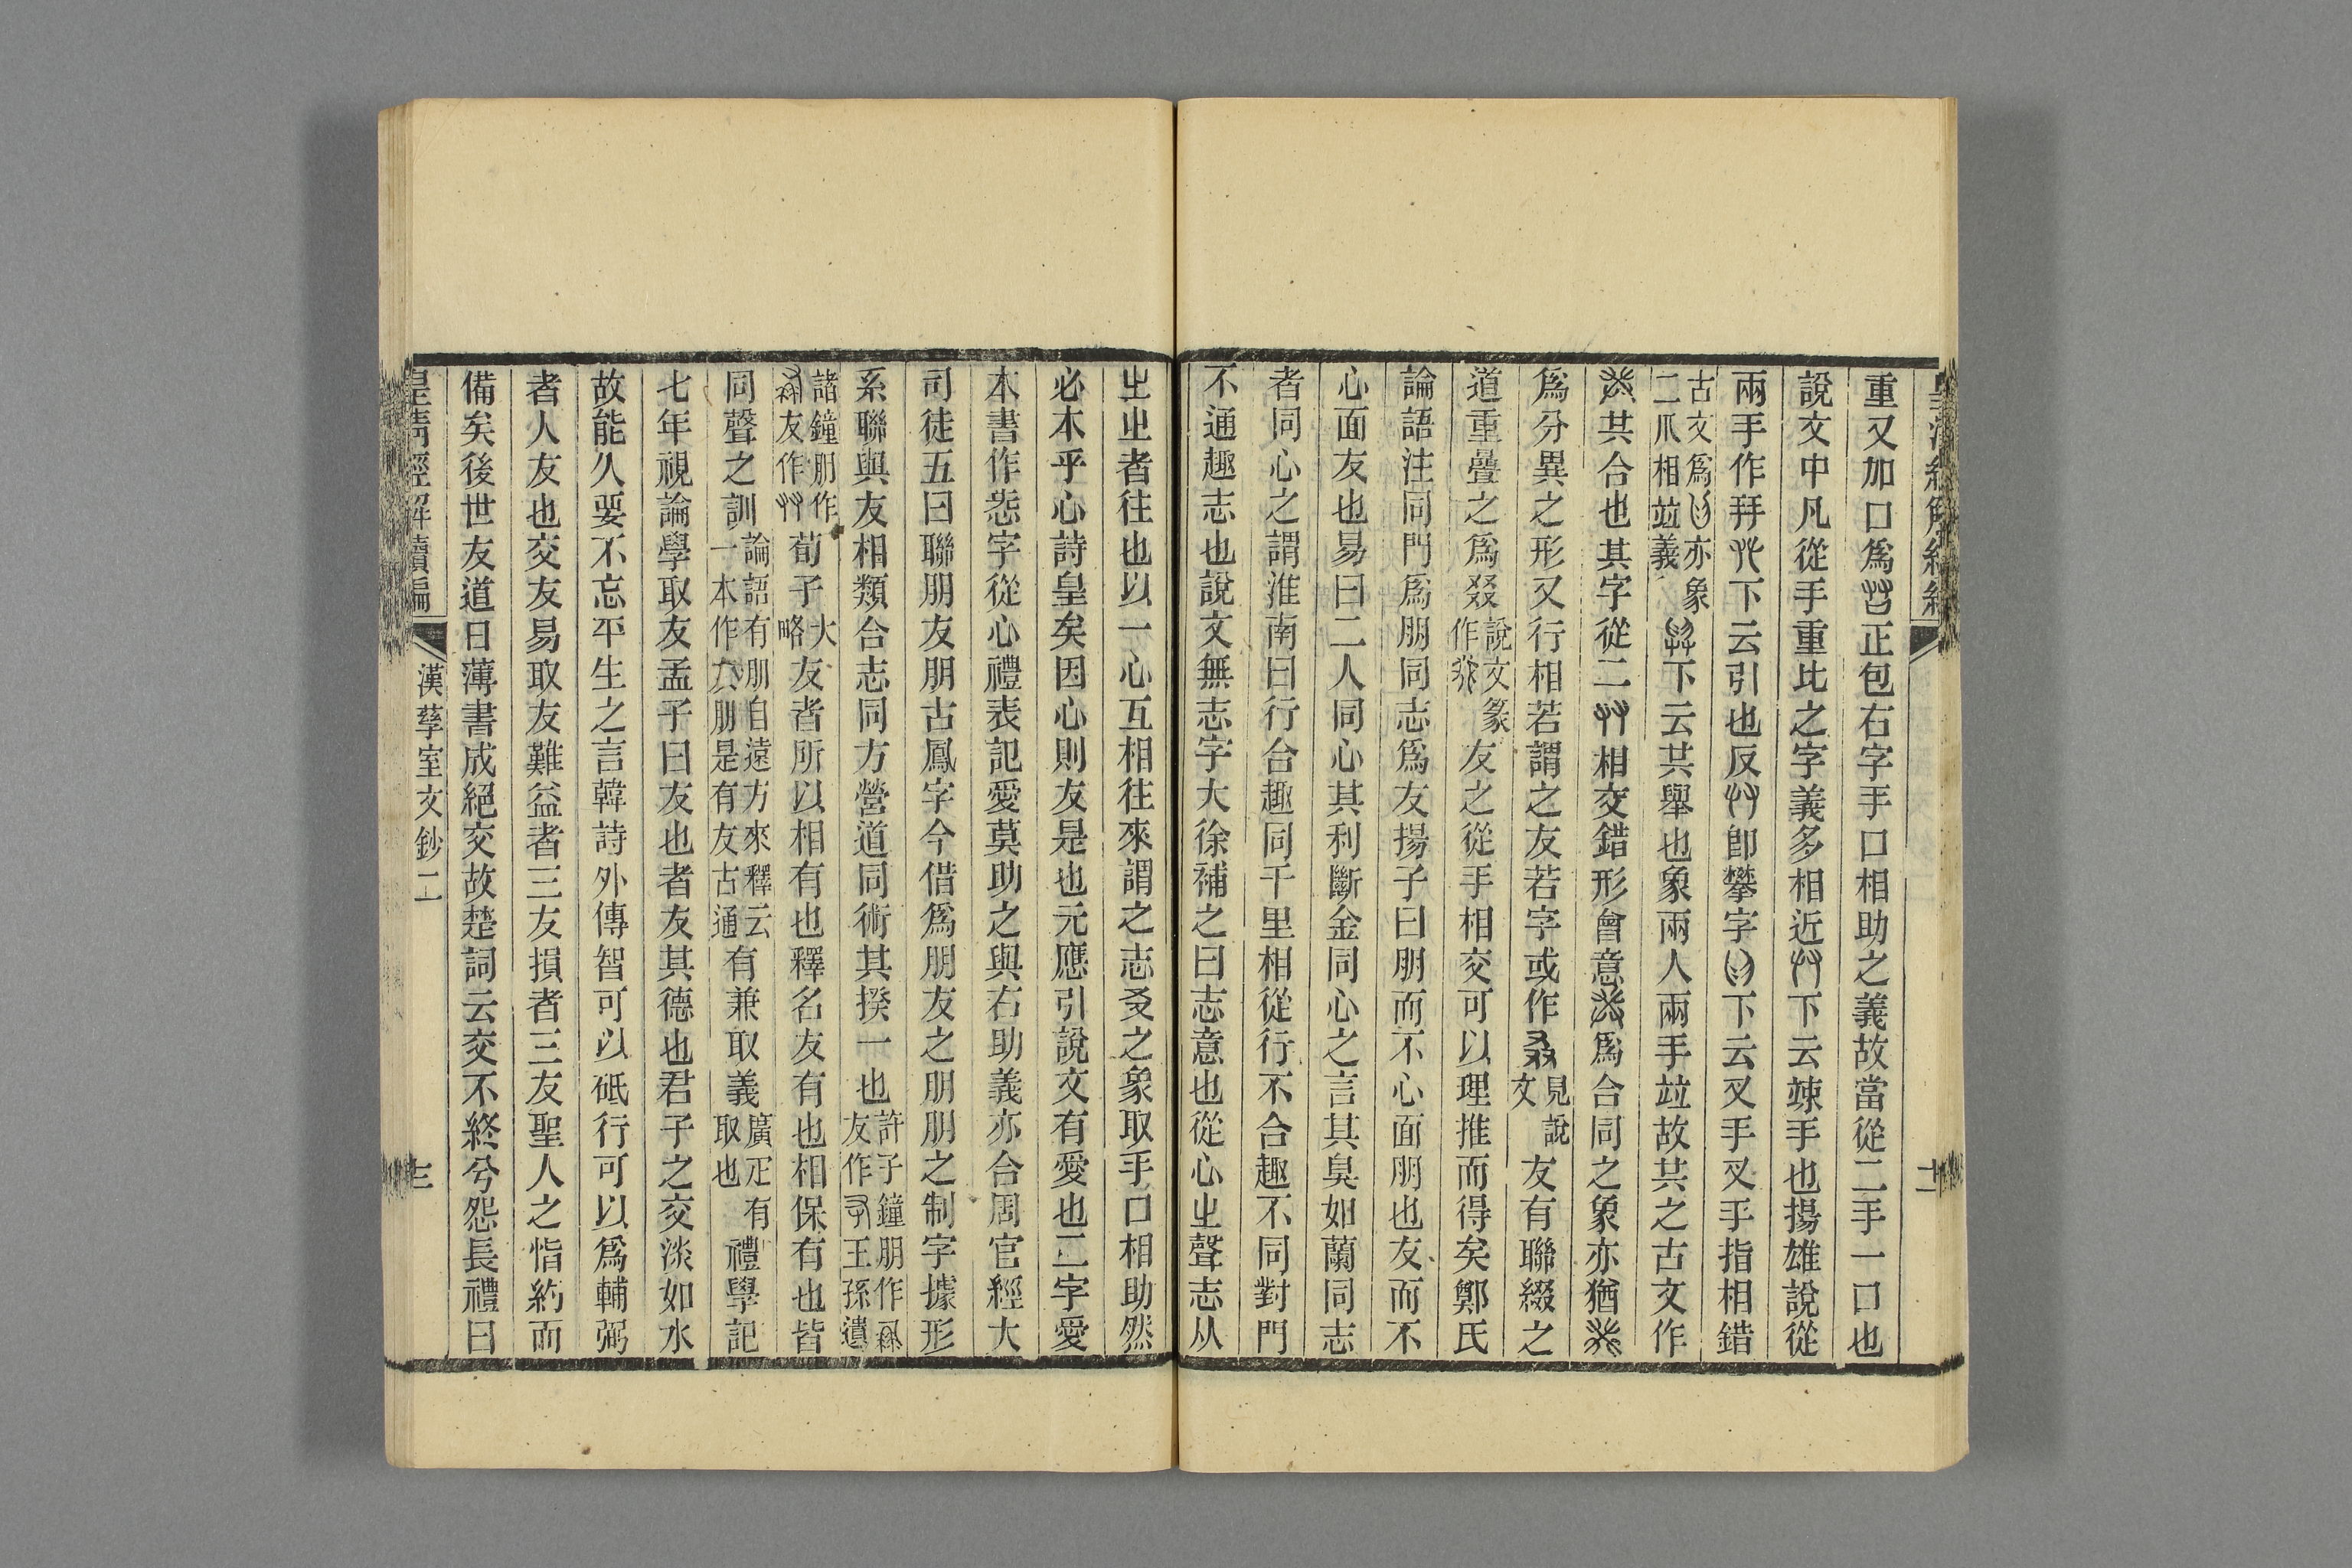 重又加口爲正包右字手口相助之義故當從二手一口也
說文中凡從手重比之字義多相近下云竦手也揚雄說從
兩手作拜下云引也反卽攀字下云叉手叉手指相錯
古文爲亦象二爪相竝義下云共舉也象兩人兩手竝故共之古文作
其合也其字從二相交錯形會意爲合同之象亦猶
爲分異之形又行相若謂之友若字或作見說文友有聯綴之
道重疊之爲叕說文篆作友之從手相交可以理推而得矣鄭氏
論語注同門爲朋同志爲友揚子曰朋而不心面朋也友而不
心面友也易曰二人同心其利斷金同心之言其臭如蘭同志
者同心之謂淮南曰行合趣同千里相從行不合趣不同對門
不通趣志也說文無志字大徐補之曰志意也從心㞢聲志从
㞢㞢者往也以一心互相往來謂之志㕛之象取手口相助然
必本乎心詩皇矣因心則友是也元應引說文有愛也二字愛
本書作㤅字從心禮表記愛莫助之與右助義亦合周官經大
司徒五曰聯朋友朋古鳳字今借爲朋友之朋朋之制字據形
系聯與友相類合志同方營道同術其揆一也許子鐘朋作友作王孫遺
諸鐘朋作友作荀子大略友者所以相有也釋名友有也相保有也皆
同聲之訓論語有朋自遠方來釋云一本作朋是有友古通有兼取義廣疋有取也禮學記
七年視論學取友孟子曰友也者友其德也君子之交淡如水
故能久要不忘平生之言韓詩外傳智可以砥行可以爲輔弼
者人友也交友易取友難益者三友損者三友聖人之恉約而
備矣後世友道日薄書成絕交故楚詞云交不終兮怨長禮曰
皇清經解續編
漢孳室文鈔二